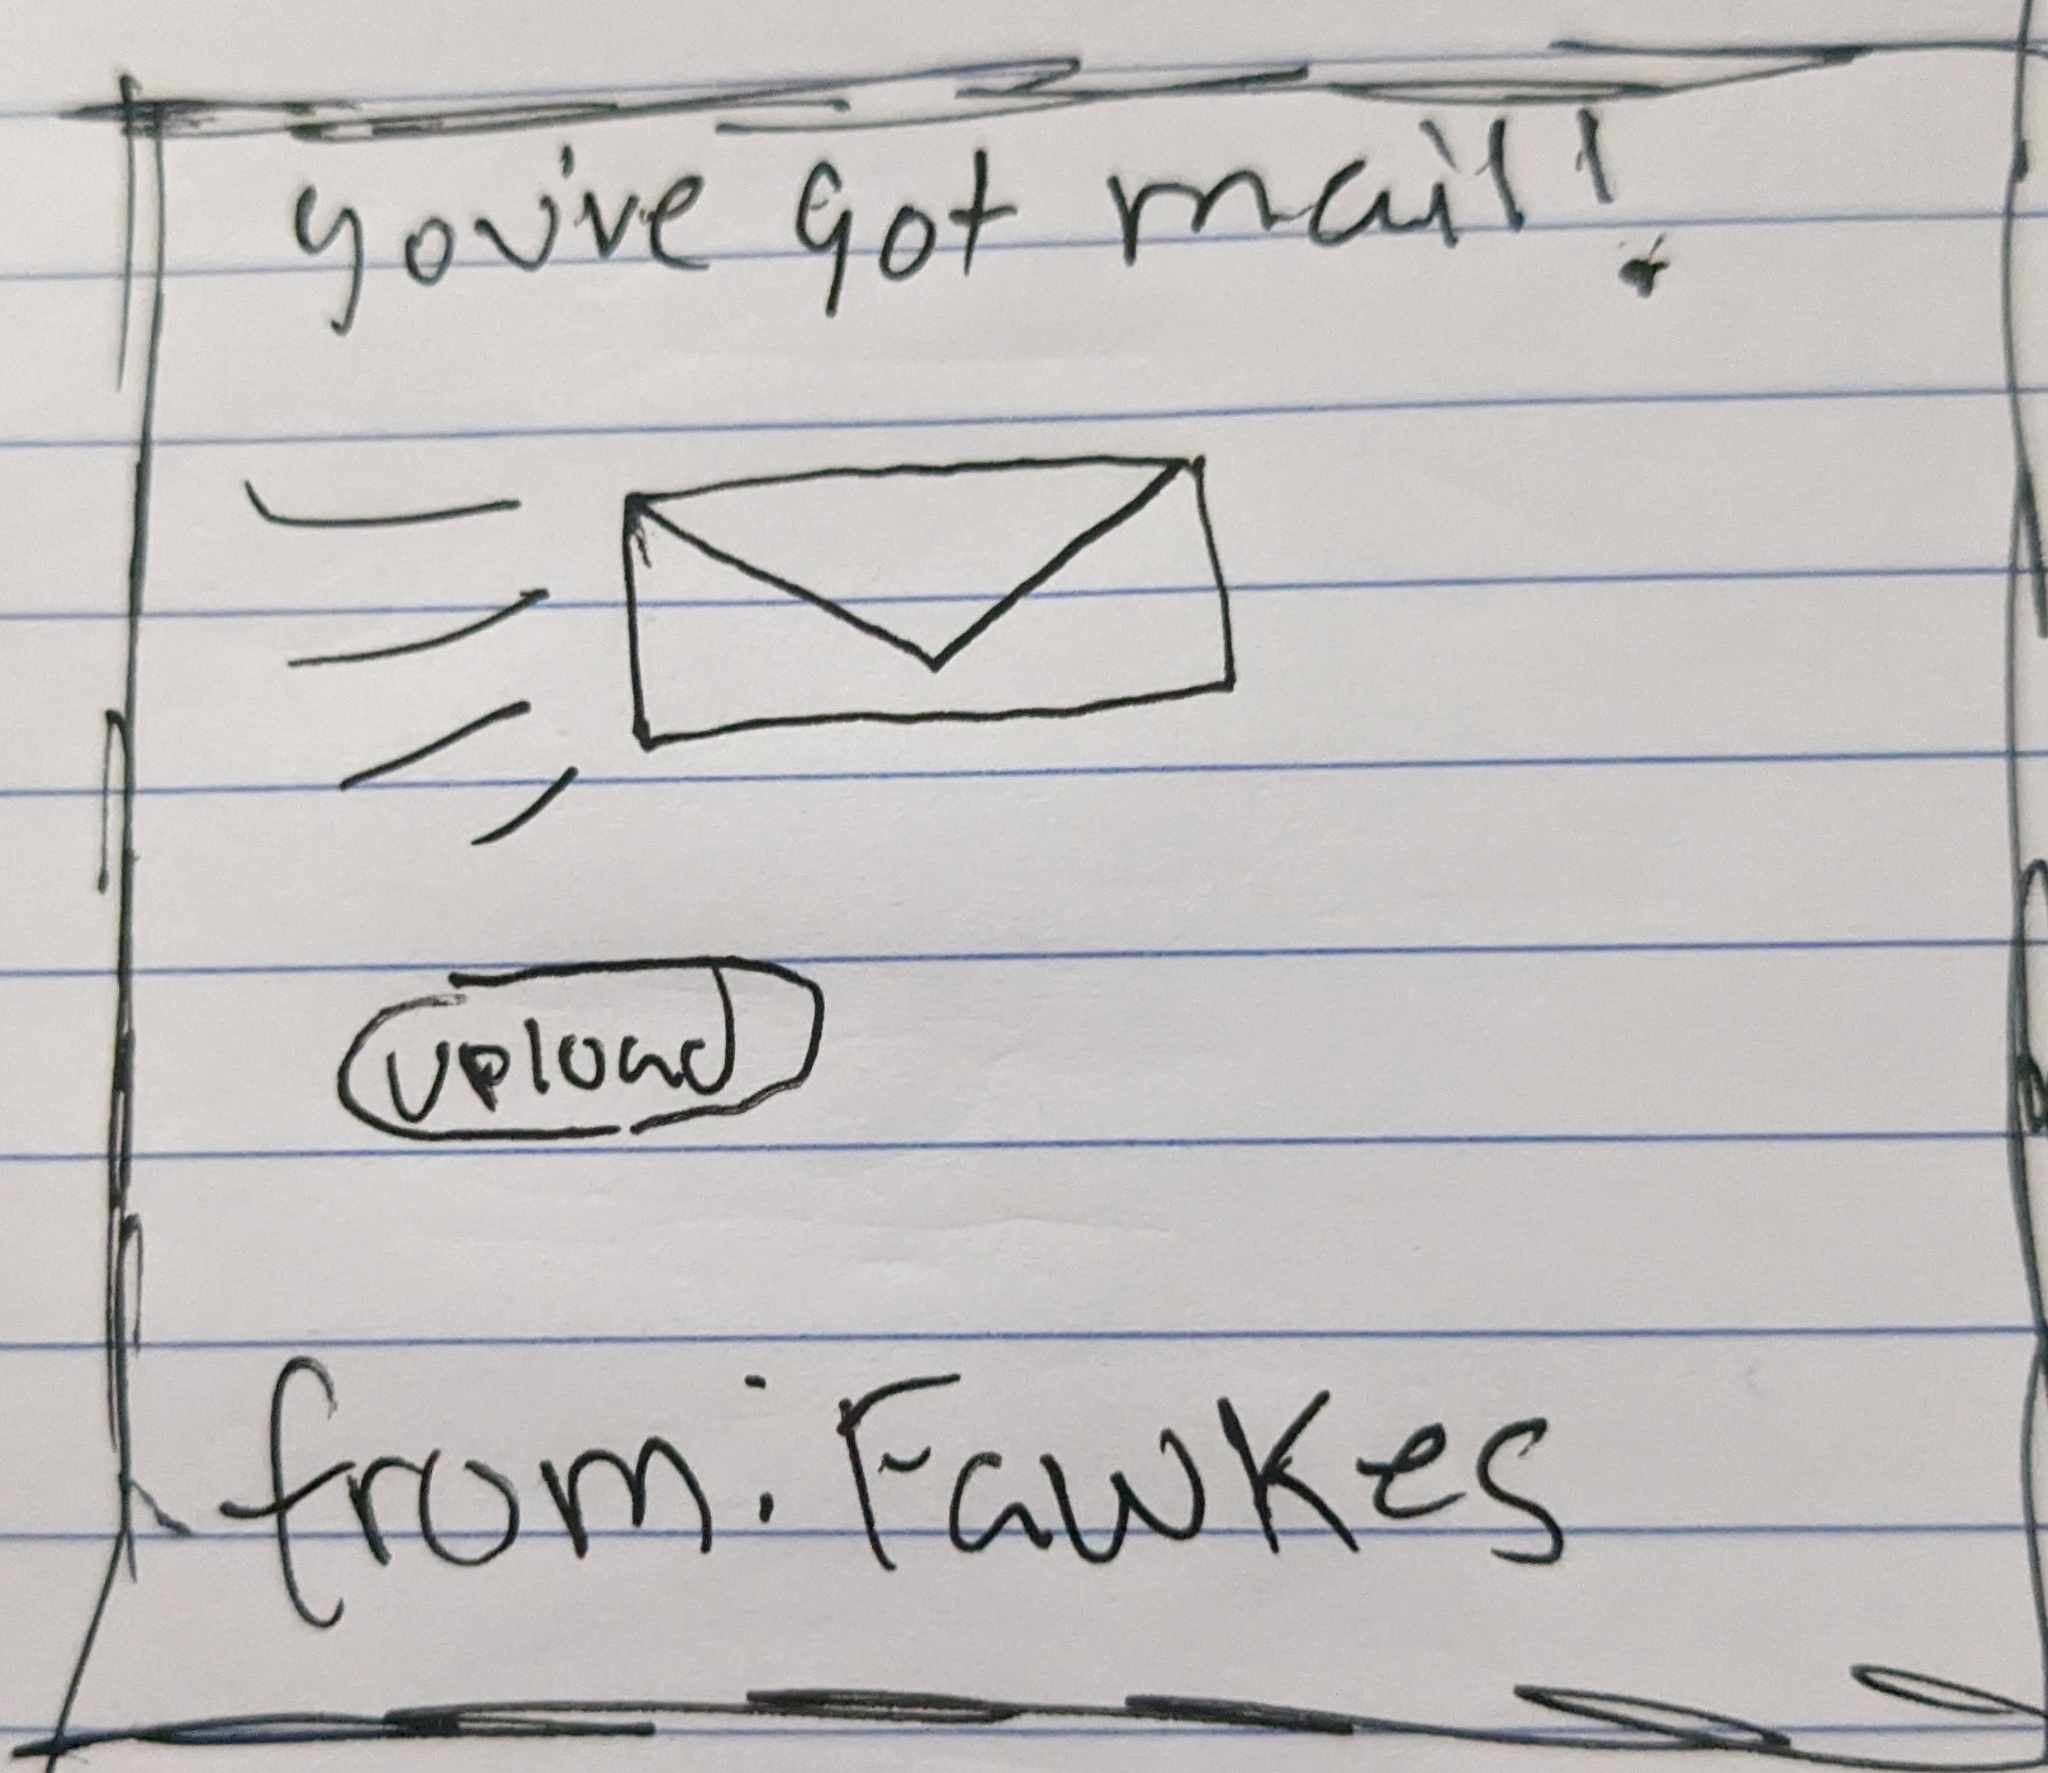 you've got mail!
upload
from: Fawkes